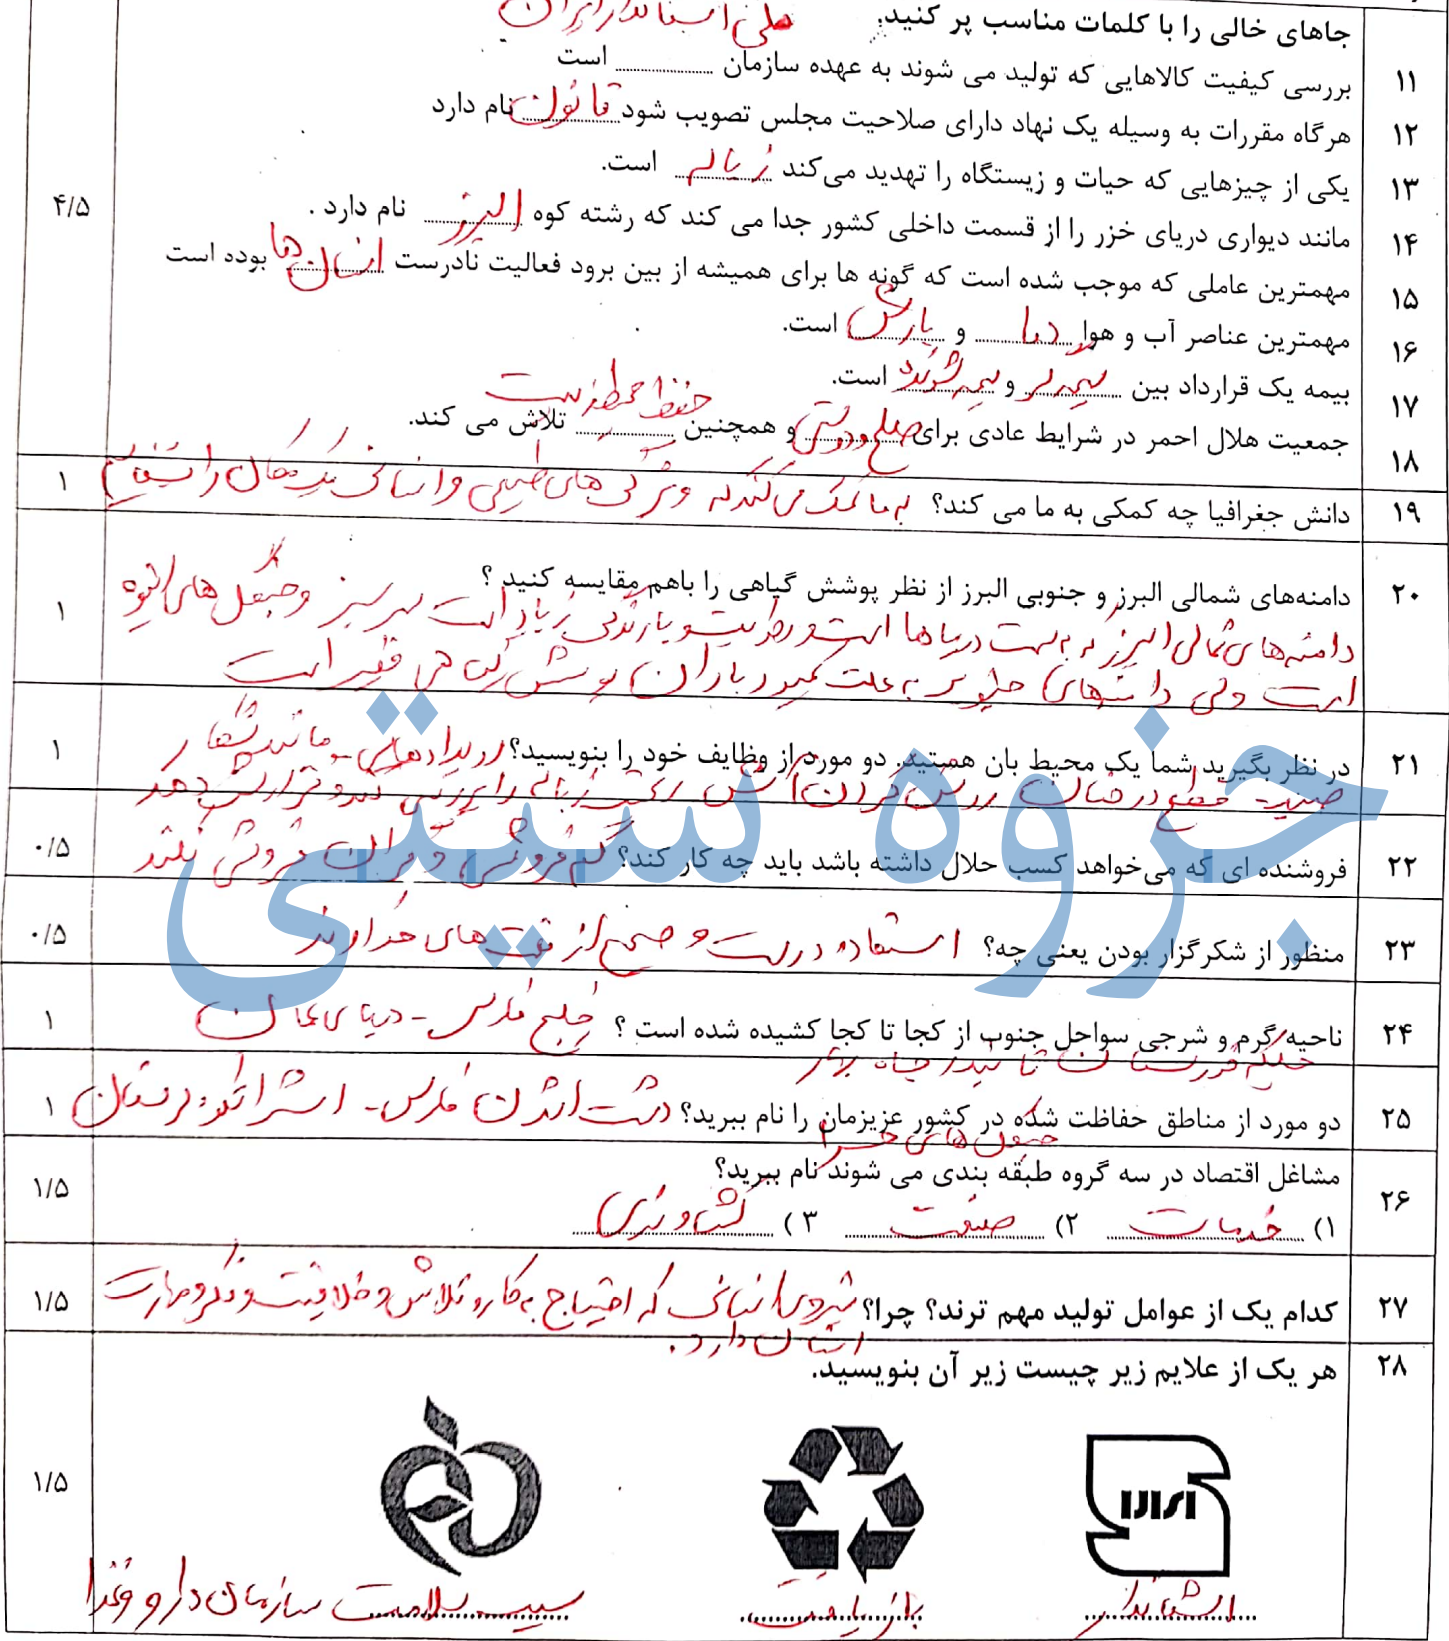 جاهای خالی را با کلمات مناسب پر کنید.
ملی استاندارد ایران
۱۱ بررسی کیفیت کالاهایی که تولید می شوند به عهده سازمان ............ است
۱۲ هرگاه مقررات به وسیله یک نهاد دارای صلاحیت مجلس تصویب شود قانون نام دارد
۱۳ یکی از چیزهایی که حیات و زیستگاه را تهدید می‌کند زباله است.
۱۴ مانند دیواری دریای خزر را از قسمت داخلی کشور جدا می کند که رشته کوه البرز نام دارد .
۴/۵
۱۵ مهمترین عاملی که موجب شده است که گونه ها برای همیشه از بین برود فعالیت نادرست انسان ها بوده است
۱۶ مهمترین عناصر آب و هوا دما و بارش است.
۱۷ بیمه یک قرارداد بین بیمه گر و بیمه شونده است.
حفظ محیط زیست
۱۸ جمعیت هلال احمر در شرایط عادی برای صلح و دوستی و همچنین ............ تلاش می کند.
۱۹ دانش جغرافیا چه کمکی به ما می کند؟ به ما کمک می کند که ویژگی های طبیعی و انسانی یک مکان را بشناسیم ۱
۲۰ دامنه‌های شمالی البرز و جنوبی البرز از نظر پوشش گیاهی را باهم مقایسه کنید ؟ ۱
دامنه های شمالی البرز که به سمت دریا ها است و رطوبت و بارندگی زیاد است سرسبز و جنگل های انبوه
است ولی دامنه های جنوبی به علت کمبود باران پوشش گیاهی فقیر است
۲۱ در نظر بگیرید شما یک محیط بان هستید. دو مورد از وظایف خود را بنویسید؟ رویدادهایی مانند شکار ۱
صید - قطع درختان روشن کردن آتش ریختن زباله را بررسی کند و گزارش دهد
۲۲ فروشنده ای که می‌خواهد کسب حلال داشته باشد باید چه کار کند؟ کم فروشی و گران فروشی نکند ۰/۵
۲۳ منظور از شکرگزار بودن یعنی چه؟ استفاده درست و صحیح از نعمت های خداوند ۰/۵
۲۴ ناحیه گرم و شرجی سواحل جنوب از کجا تا کجا کشیده شده است ؟ خلیج فارس - دریای عمان ۱
جلگه خوزستان تا بندر چاه بهار
۲۵ دو مورد از مناطق حفاظت شده در کشور عزیزمان را نام ببرید؟ دشت ارژن فارس - اشترانکوه لرستان ۱
جنگل های حرا
۲۶ مشاغل اقتصاد در سه گروه طبقه بندی می شوند نام ببرید؟ ۱/۵
۱) خدمات ۲) صنعت ۳) کشاورزی
۲۷ کدام یک از عوامل تولید مهم ترند؟ چرا؟ نیروی انسانی که احتیاج به کار و تلاش و خلاقیت و فکر و مهارت ۱/۵
انسان دارد.
۲۸ هر یک از علایم زیر چیست زیر آن بنویسید.
۱/۵
استاندارد
بازیافت
سیب سلامت سازمان دارو و غذا
جزوه سیتی